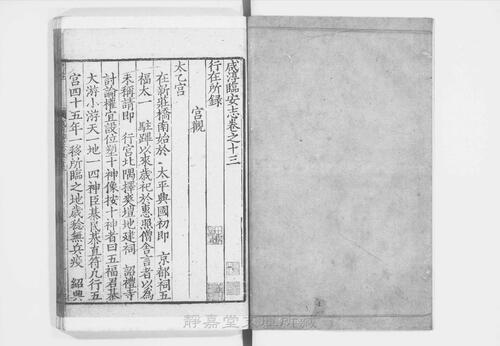 咸淳臨安志卷之十三
行在所錄
宮觀
太乙宮
在新莊橋南始於 太平興國初即 京都祠五
福太一 駐蹕以來歲祀於惠照僧舍言者以為
未稱請即 行宮北隅擇爽塏地建祠 詔禮寺
討論權宜設位塑十神像按十神者曰五福君綦
大游小游天一地一四神臣綦民綦直符凡行五
宮四十五年一移所臨之地歲稔無兵疫 紹興
靜嘉堂文庫所藏